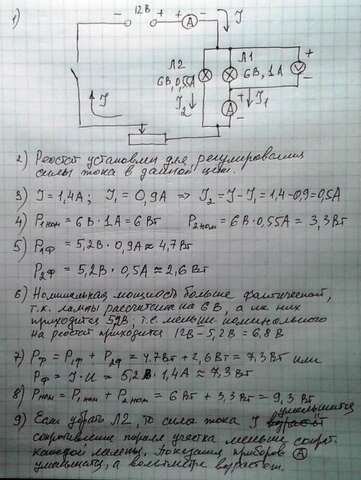 1)
- 12В + + A - I
Л2 Л1 +
6В, 0,55А 6В, 1А V -
I I₂ + A - I₁
2) Реостат установили для регулирования
силы тока в данной цепи.
3) I = 1,4А; I₁ = 0,9А ⇒ I₂ = I - I₁ = 1,4 - 0,9 = 0,5А
4) P₁ном = 6В · 1А = 6Вт P₂ном = 6В · 0,55А = 3,3Вт
5) P₁ф = 5,2В · 0,9А ≈ 4,7Вт
P₂ф = 5,2В · 0,5А ≈ 2,6Вт
6) Номинальная мощность больше фактической,
т.к. лампы рассчитаны на 6В, а на них
приходится 5,2В, т.е. меньше номинального
на реостат приходится 12В - 5,2В = 6,8В
7) Pф = P₁ф + P₂ф = 4,7Вт + 2,6Вт = 7,3Вт или
Pф = I · U = 5,2В · 1,4А ≈ 7,3Вт
8) Pном = P₁ном + P₂ном = 6Вт + 3,3Вт = 9,3Вт
9) Если убрать Л2, то сила тока I уменьшится
сопротивление паралл. участка меньше сопрот.
каждой лампы. Показания приборов A
уменьшатся, а вольтметра возрастет.